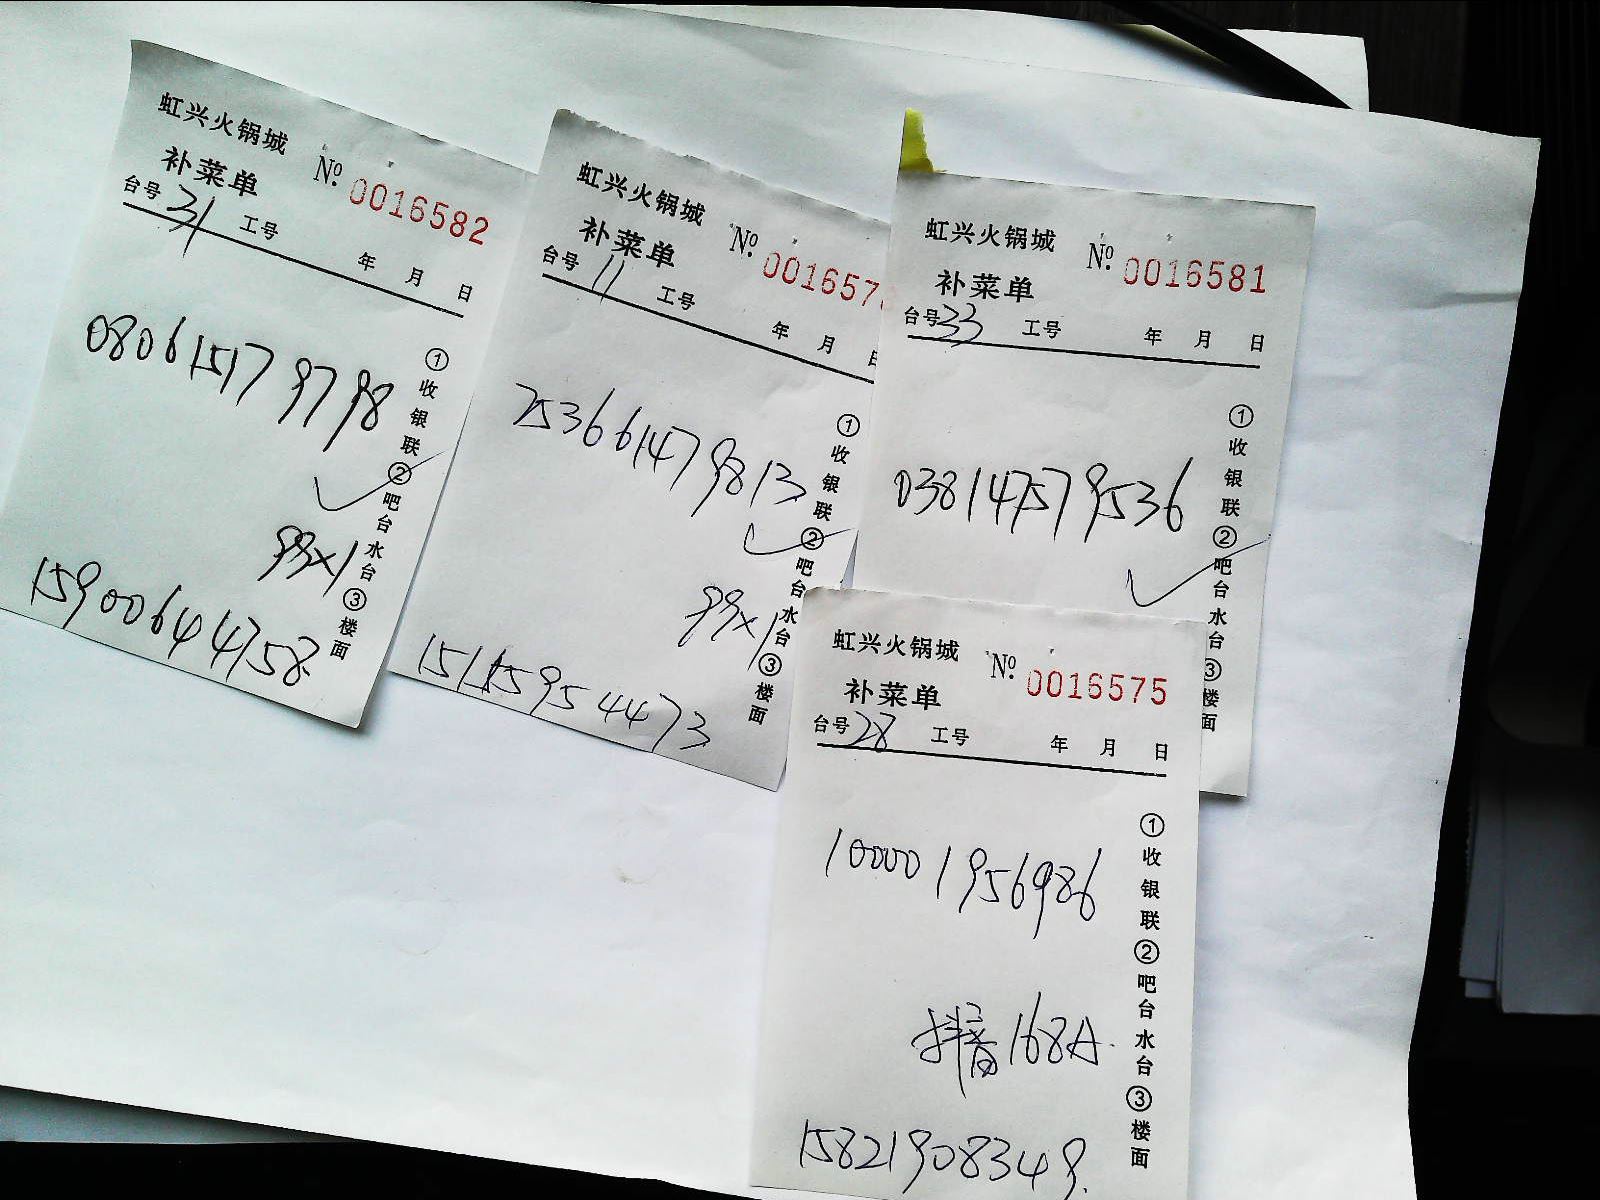 虹兴火锅城
补菜单
№ 0016582
台号 31 工号 年 月 日
080615179798
99×1
15900644758
①收银联②吧台水台③楼面
虹兴火锅城
补菜单
№ 001657
台号 11 工号 年 月 日
253661479813
99×1
①收银联②吧台水台③楼面
虹兴火锅城
补菜单
№ 0016581
台号 33 工号 年 月 日
038147579536
①收银联②吧台水台③楼面
虹兴火锅城
补菜单
№ 0016575
台号 28 工号 年 月 日
100001956986
抖音168A
15821908349
①收银联②吧台水台③楼面